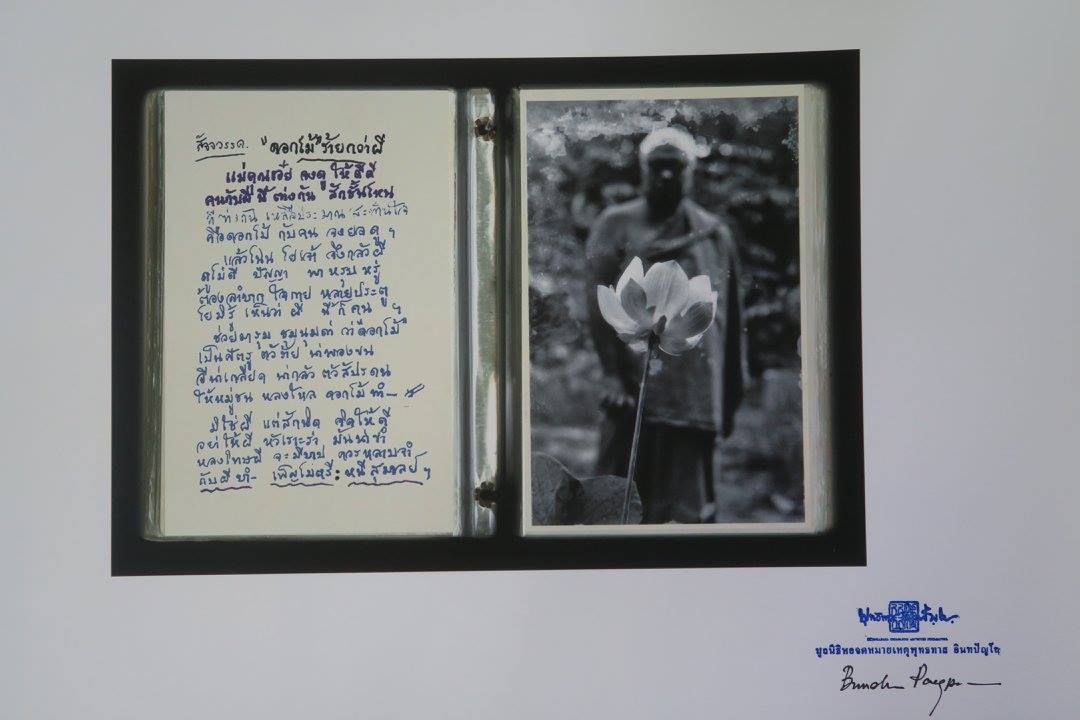 สัจจวรรค. "ดอกไม้" ร้ายกว่าผี
แม่คุณเอ๋ย จงดู ให้ดีดี
คนกับผี นี้ ต่างกัน สักชั้นไหน
ที่ ต่างกัน เหลือประมาณ
คือดอกไม้ กับคน จงยลดู ฯ
แล้วไฉน โยเจ้า จึงกลัวผี
ดูไม่ดี ปัญญา พา หรุบ หรู่
ต้องลำบาก ใจกาย หลายประตู
โยมิรู้ เห็นว่า ผี นี้ ก็ คน ฯ
ช่วยมารุม ชุมนุมด่า ว่า "ดอกไม้"
เป็นศัตรู ตัวภัย น่าพองขน
ผีน่าเกลียด น่ากลัว ตัวสัปดน
ให้หมู่ชน หลงใหล ดอกไม้ทำ–
มิใช่ผี แต่สักนิด คิดให้ดี
อย่าให้ผี หัวเราะร่า มันน่าขำ
หลงโทษผี จะมีบาป ควรหลาบจำ
กับผีทำ– เพ็ญไมตรี : หนีสุมาลย์ ฯ
มูลนิธิหอจดหมายเหตุพุทธทาส อินทปัญโญ